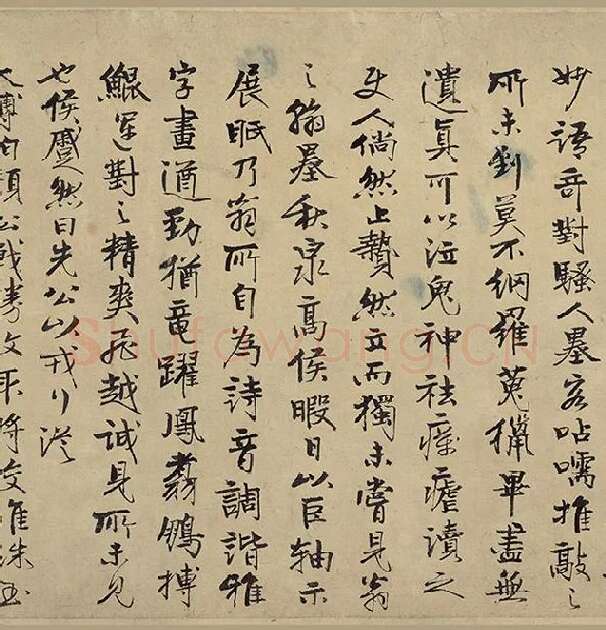 妙語奇對騷人墨客呫嚅推敲之
所未到莫不網羅蒐獵畢盡無
遺真可以泣鬼神祛讀之
使人倘然止贄然立而獨未嘗見翁
之翰墨秋泉高侯暇日以巨軸示
展眂乃翁所自為詩音調諧雅
字畫遒勁猶竜躍鳳翥鵬摶
鯤運對之精爽飛越誠見所未見
也侯蹙然曰先公以戎行從
Shufawang.CN